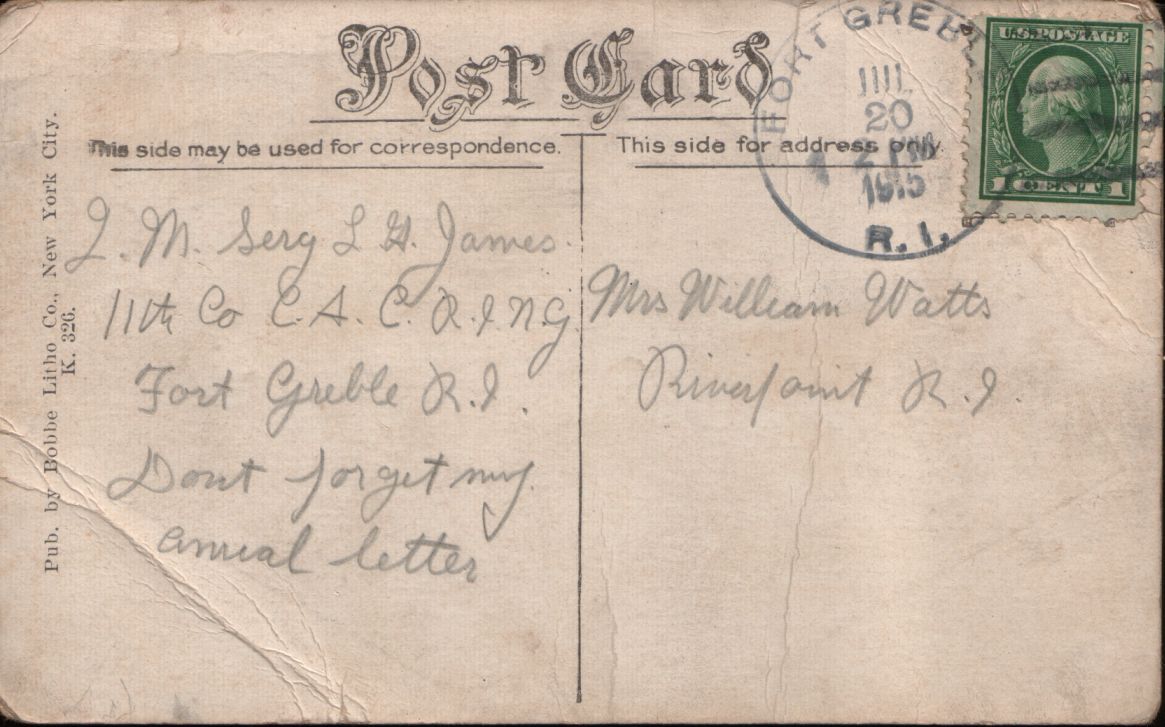 Post Card
This side may be used for correspondence.
This side for address only.
FORT GREBLE
JUL
20
2 PM
1915
R. I.
U.S. POSTAGE
1 CENT 1
Pub. by Bobbe Litho Co., New York City.
K. 326.
Q. M. Serg L H. James.
11th Co C. A. C. R. I N. G.
Fort Greble R. I.
Dont forget my
anual letter
Mrs William Watts
Riverpoint R. I.